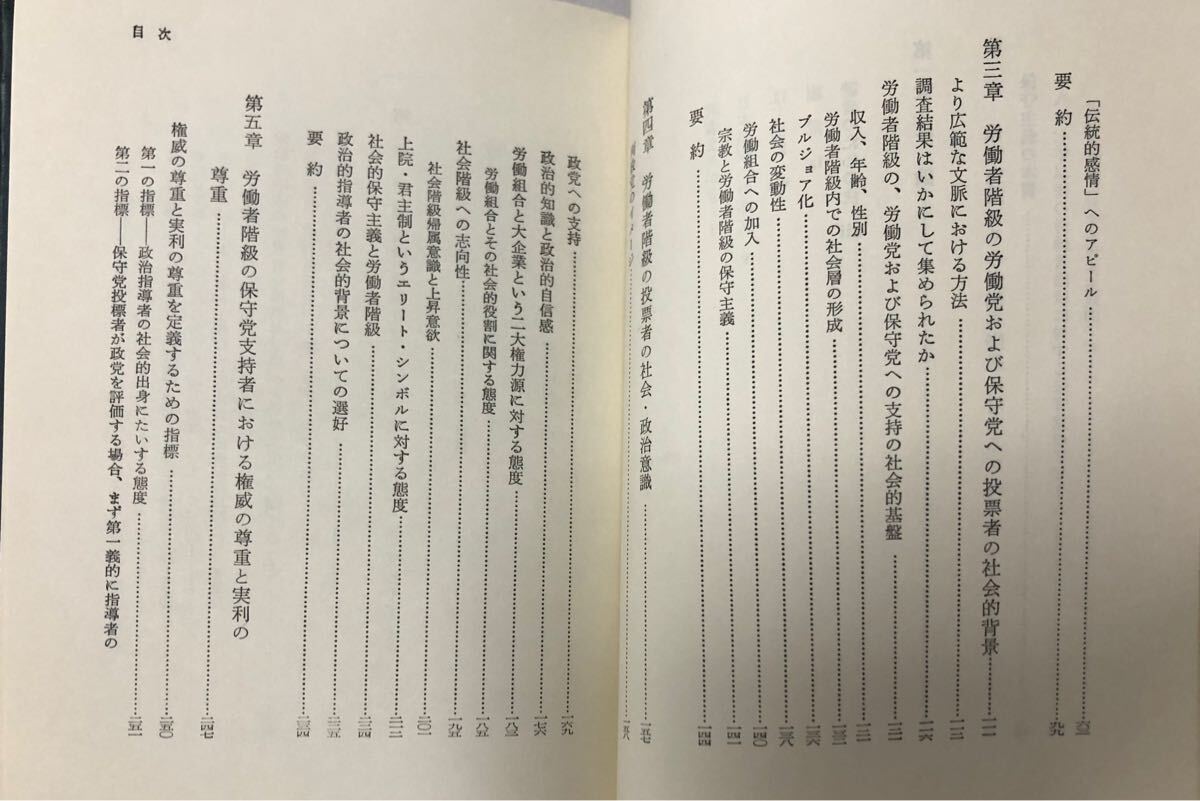 「伝統的感情」へのアピール……
要約……
第三章 労働者階級の労働党および保守党への投票者の社会的背景……一一一
より広範な文脈における方法……
調査結果はいかにして集められたか……一一六
労働者階級の、労働党および保守党への支持の社会的基盤……一二一
収入、年齢、性別……一三一
労働者階級内での社会層の形成……
ブルジョア化……一三六
社会の変動性……一三八
労働組合への加入……一四〇
宗教と労働者階級の保守主義……一四一
要約……一四四
第四章 労働者階級の投票者の社会・政治意識……一五七
……一五八
目次
政党への支持……一六九
政治的知識と政治的自信感……一七六
労働組合と大企業という二大権力源に対する態度……一八〇
労働組合とその社会的役割に関する態度……一八五
社会階級への志向性……一九五
社会階級帰属意識と上昇意欲……二〇一
上院・君主制というエリート・シンボルに対する態度……
社会的保守主義と労働者階級……二二四
政治的指導者の社会的背景についての選好……二二五
要約……二三四
第五章 労働者階級の保守党支持者における権威の尊重と実利の
尊重……二四七
権威の尊重と実利の尊重を定義するための指標……二五〇
第一の指標――政治指導者の社会的出身にたいする態度……二五一
第二の指標――保守党投票者が政党を評価する場合、まず第一義的に指導者の